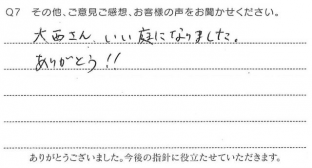 Q7 その他、ご意見ご感想、お客様の声をお聞かせください。
大西さん、いい庭になりました。
ありがとう!!
ありがとうございました。今後の指針に役立たせていただきます。